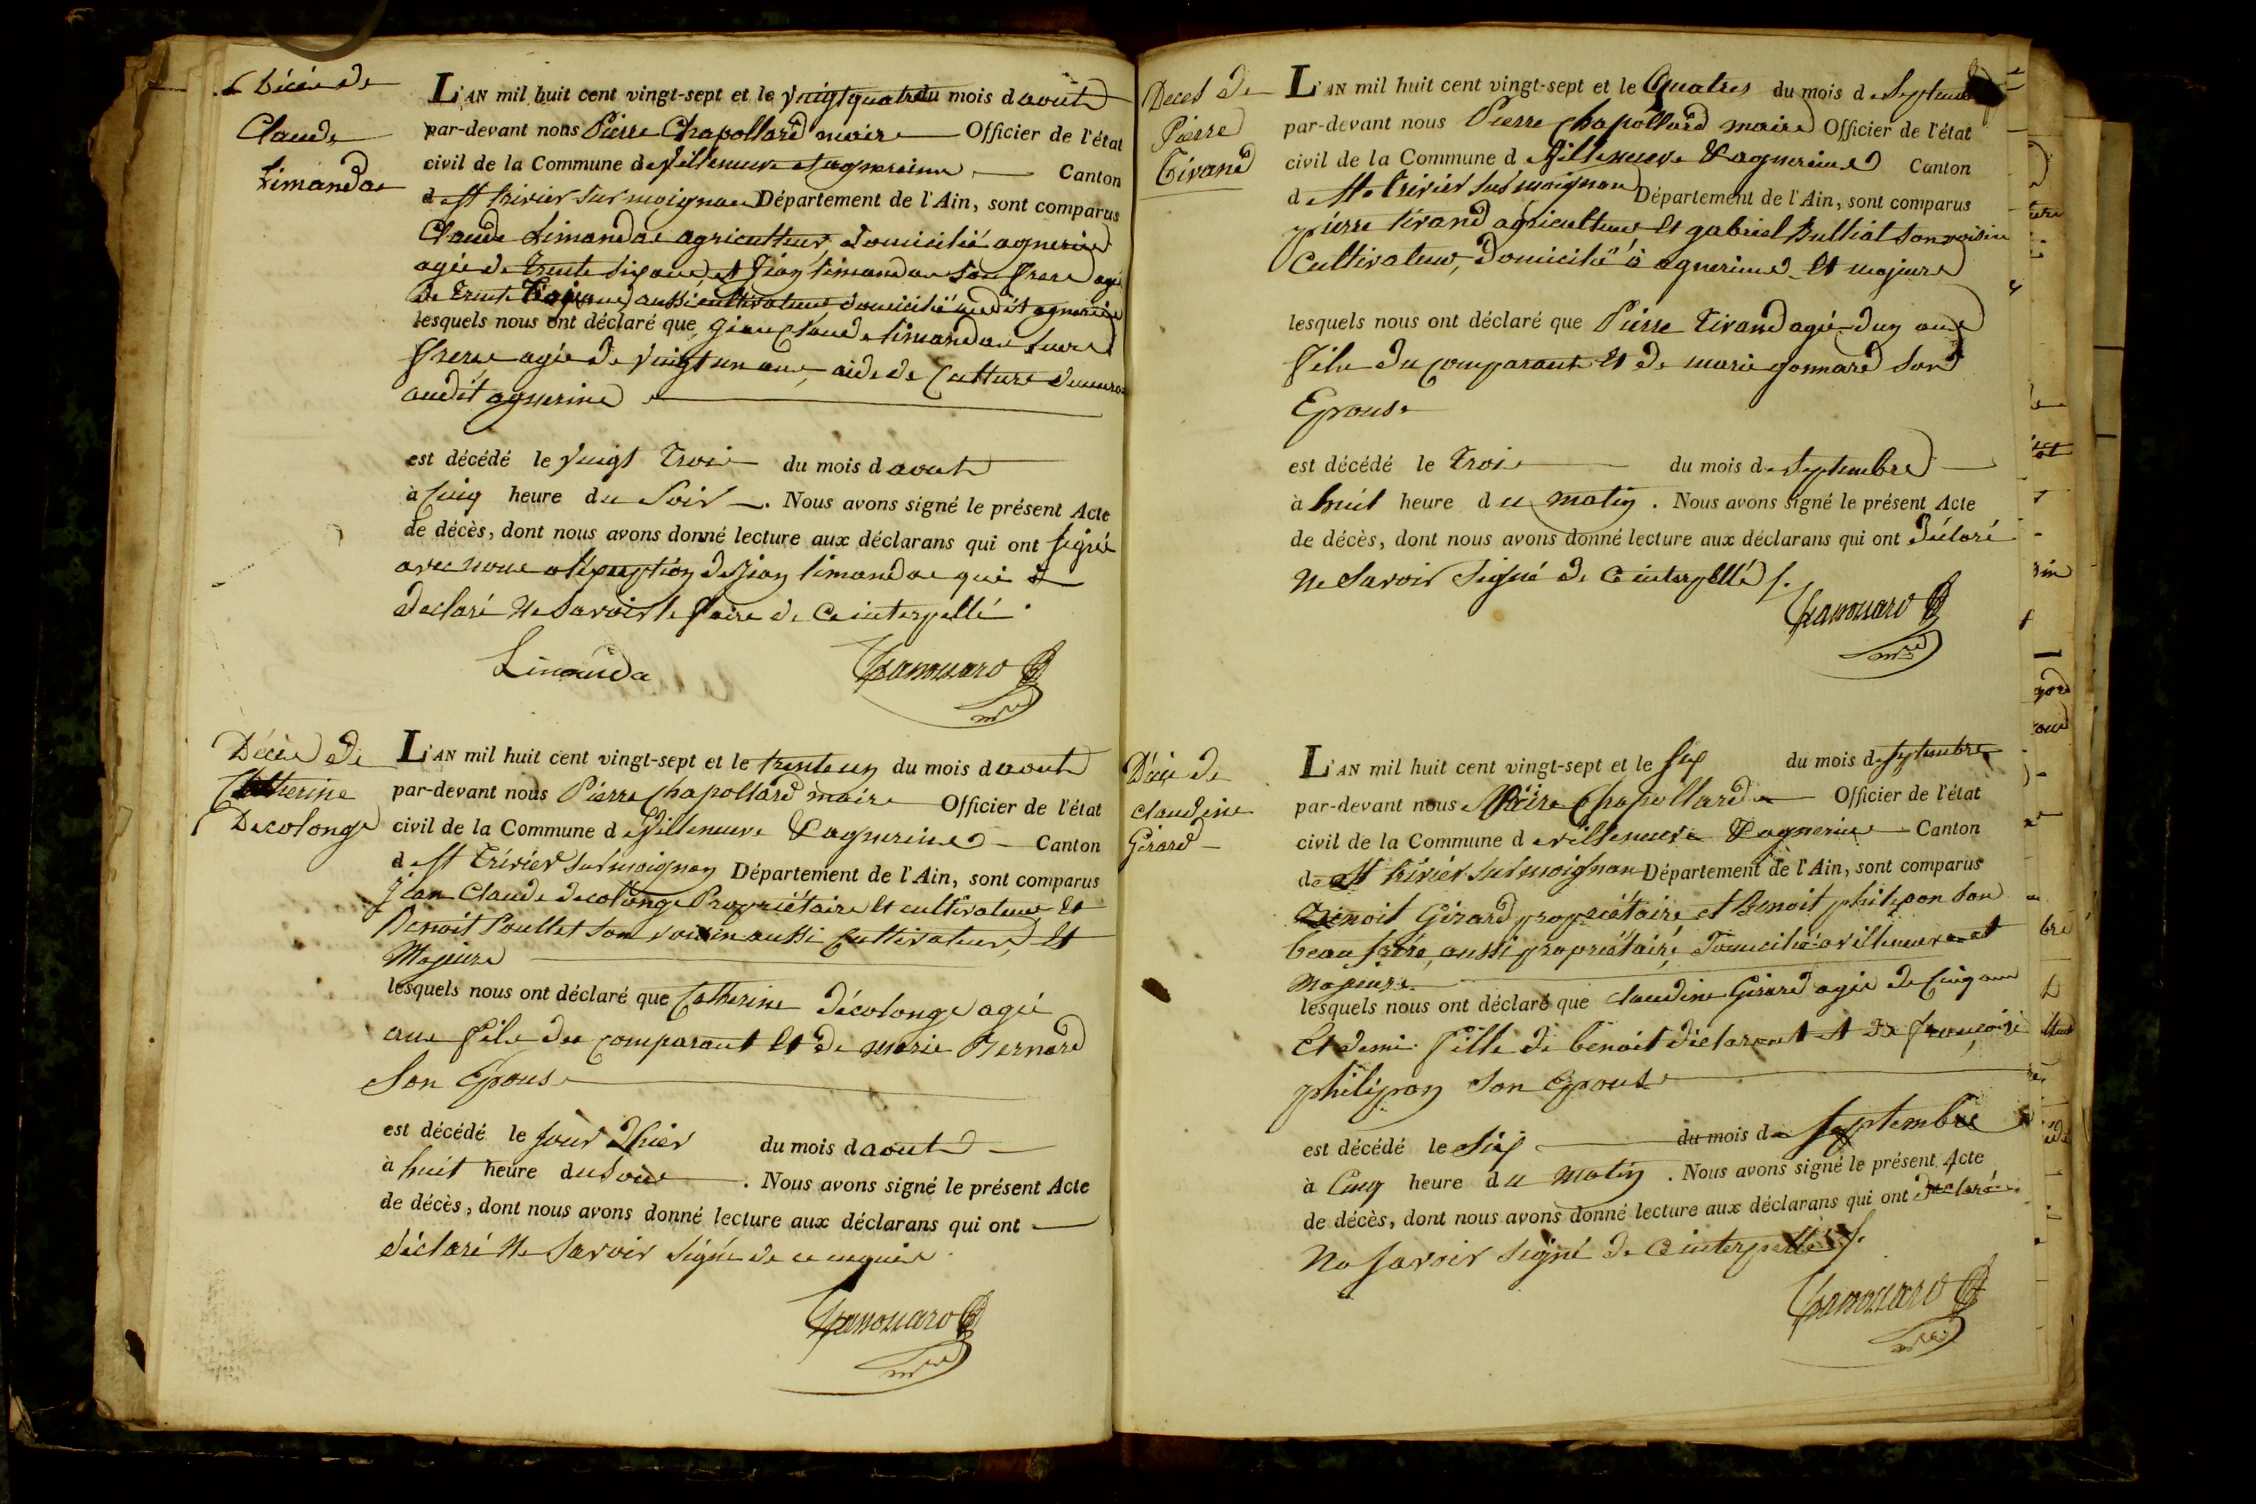 Décès de
Claude
Limandas
L'AN mil huit cent vingt-sept et le vingt quatre du mois d aout
par-devant nous Pierre Chapollard maire Officier de l'état
civil de la Commune de Villeneuve et agnereins Canton
de St trivier sur moignan Département de l'Ain, sont comparus
Claude Limandas agriculteur, domicilié agnerins
agée de trente six ans, et Jean limandas son frere agé
de trente ans aussi cultivateur domicilié audit agnerins
lesquels nous ont déclaré que jean Claude limandas leur
frere agée de vingt un ans, aide de Culture demeurant
audit agnerins
est décédé le vingt trois du mois d aout
à Cinq heure du Soir . Nous avons signé le présent Acte
de décès, dont nous avons donné lecture aux déclarans qui ont signé
avec nous a l'exception de jean limandas qui a
declaré ne savoir le faire de ce interpellé
Limanda
Décès de
Catherine
Decolonge
L'AN mil huit cent vingt-sept et le trente un du mois d aout
par-devant nous Pierre Chapollard maire Officier de l'état
civil de la Commune de Villeneuve & agnereins Canton
de St Trivier sur moignan Département de l'Ain, sont comparus
Jean Claude decolonge Propriétaire et cultivateur et
Benoit Poullet son voisin aussi Cultivateur, et
Majeurs
lesquels nous ont déclaré que Catherine décolonge agée
ans fille du comparant et de marie Bernard
son Epouse
est décédé le jour d'hier du mois d aout
à huit heure du soir . Nous avons signé le présent Acte
de décès, dont nous avons donné lecture aux déclarans qui ont
déclaré ne savoir signé de ce enquis
Decès de
Pierre
Tivand
L'AN mil huit cent vingt-sept et le Quatres du mois de Septembre
par-devant nous Pierre Chapollard maire Officier de l'état
civil de la Commune de Villeneuve & agnereins Canton
de St. Trivier sur moignan Département de l'Ain, sont comparus
pierre tivand agriculteur et gabriel Bulliat son voisin
Cultivateur, domicilié à agnerins et majeurs
lesquels nous ont déclaré que Pierre Tivand agée d'un ans
fils du comparant et de marie gonnard son
Epouse
est décédé le trois du mois de septembre
à huit heure du matin . Nous avons signé le présent Acte
de décès, dont nous avons donné lecture aux déclarans qui ont déclaré
ne savoir signé de ce interpellé /.
Décès de
claudine
Girard
L'AN mil huit cent vingt-sept et le six du mois de septembre
par-devant nous Pierre Chapollard Officier de l'état
civil de la Commune de villeneuve & agnerins Canton
de St trivier sur moignan Département de l'Ain, sont comparus
Benoit Girard propriétaire et Benoit philipon son
beau frère, aussi propriétaire, domicilié a villeneuve et
majeurs
lesquels nous ont déclaré que claudine Girard agée de Cinq ans
Et demi fille de benoit déclarant et de françoise
philipon son epouse
est décédé le six du mois de septembre
à Cinq heure du matin . Nous avons signé le présent Acte
de décès, dont nous avons donné lecture aux déclarans qui ont declaré
ne savoir signé de ce interpellé /.